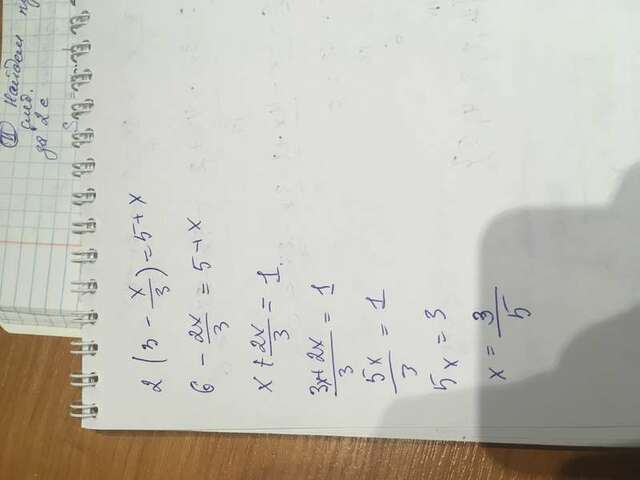 II Найдем
за 2 с
2 (3 - x/3) = 5 + x
6 - 2x/3 = 5 + x
x + 2x/3 = 1
3x + 2x/3 = 1
5x/3 = 1
5x = 3
x = 3/5